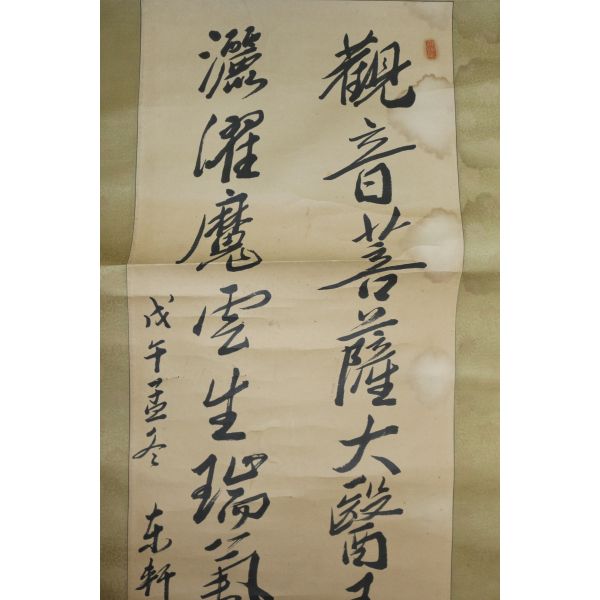 觀音菩薩大醫王
灑濯魔雲生瑞氣
戊午孟冬 东軒